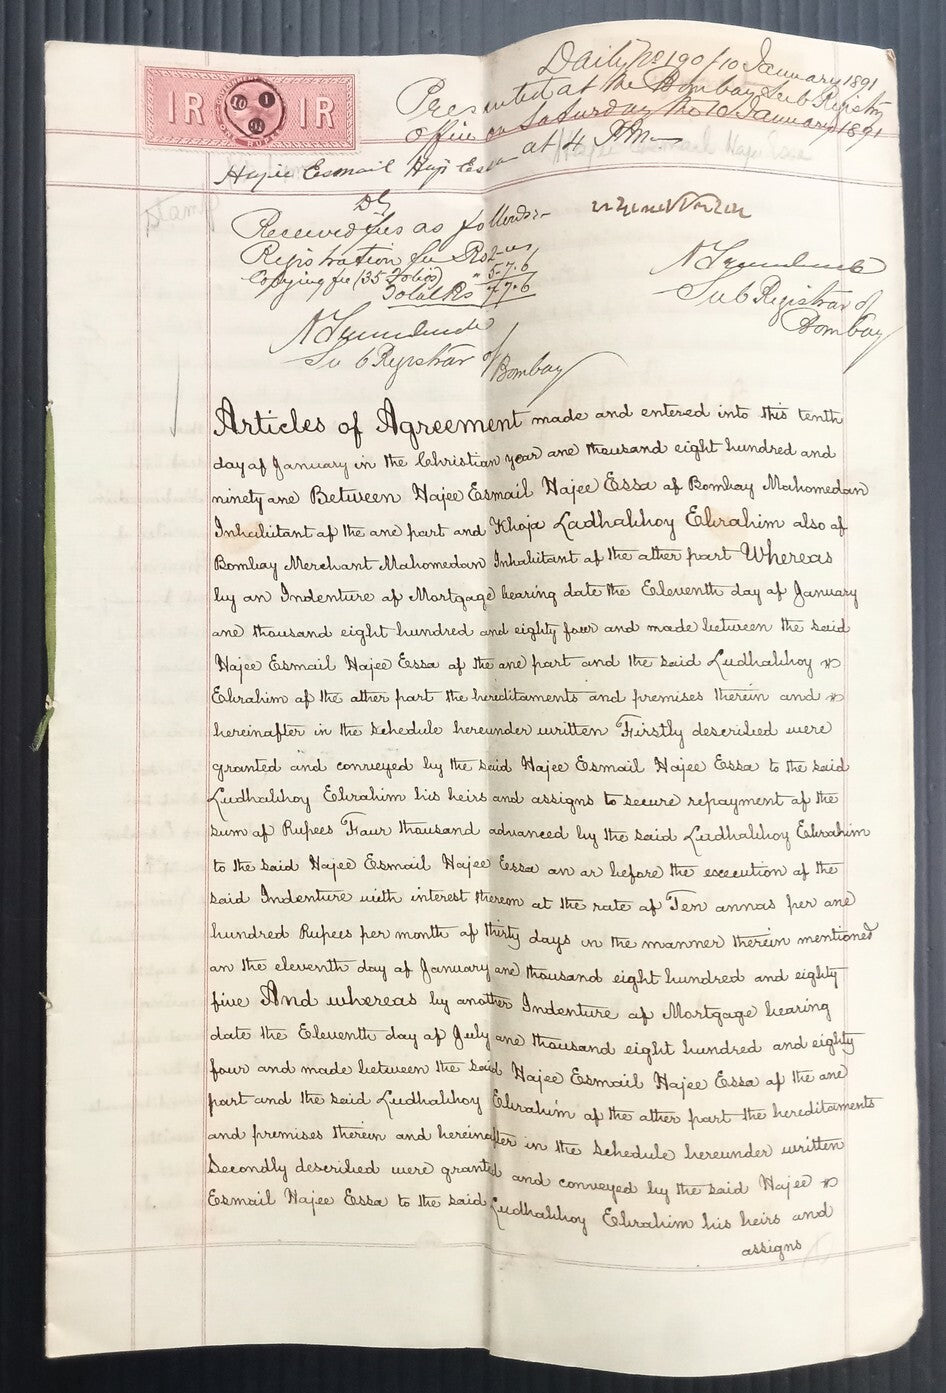 1R 1R
Daily No 190 / 10 January 1891
Presented at the Bombay Sub Registry
office on Saturday the 10 January 1891
at 4 PM
Hajee Esmail Haji Essa
Stamp
Received fees as follows:-
Registration fee Rs 2-"-"
Copying fee (35 Folios) " 5-7.6
Total Rs 7.7.6
Sub Registrar of
Bombay
Sub Registrar of
Bombay
Articles of Agreement made and entered into this tenth
day of January in the Christian year one thousand eight hundred and
ninety one Between Hajee Esmail Hajee Essa of Bombay Mahomedan
Inhabitant of the one part and Khoja Ladhabhoy Ebrahim also of
Bombay Merchant Mahomedan Inhabitant of the other part Whereas
by an Indenture of Mortgage bearing date the Eleventh day of January
one thousand eight hundred and eighty four and made between the said
Hajee Esmail Hajee Essa of the one part and the said Ludhabhoy
Ebrahim of the other part the hereditaments and premises therein and
hereinafter in the schedule hereunder written Firstly described were
granted and conveyed by the said Hajee Esmail Hajee Essa to the said
Ludhabhoy Ebrahim his heirs and assigns to secure repayment of the
sum of Rupees Four thousand advanced by the said Ludhabhoy Ebrahim
to the said Hajee Esmail Hajee Essa on or before the execution of the
said Indenture with interest thereon at the rate of Ten annas per one
hundred Rupees per month of thirty days in the manner therein mentioned
on the eleventh day of January one thousand eight hundred and eighty
five And whereas by another Indenture of Mortgage bearing
date the Eleventh day of July one thousand eight hundred and eighty
four and made between the said Hajee Esmail Hajee Essa of the one
part and the said Ludhabhoy Ebrahim of the other part the hereditaments
and premises therein and hereinafter in the schedule hereunder written
Secondly described were granted and conveyed by the said Hajee
Esmail Hajee Essa to the said Ludhabhoy Ebrahim his heirs and
assigns